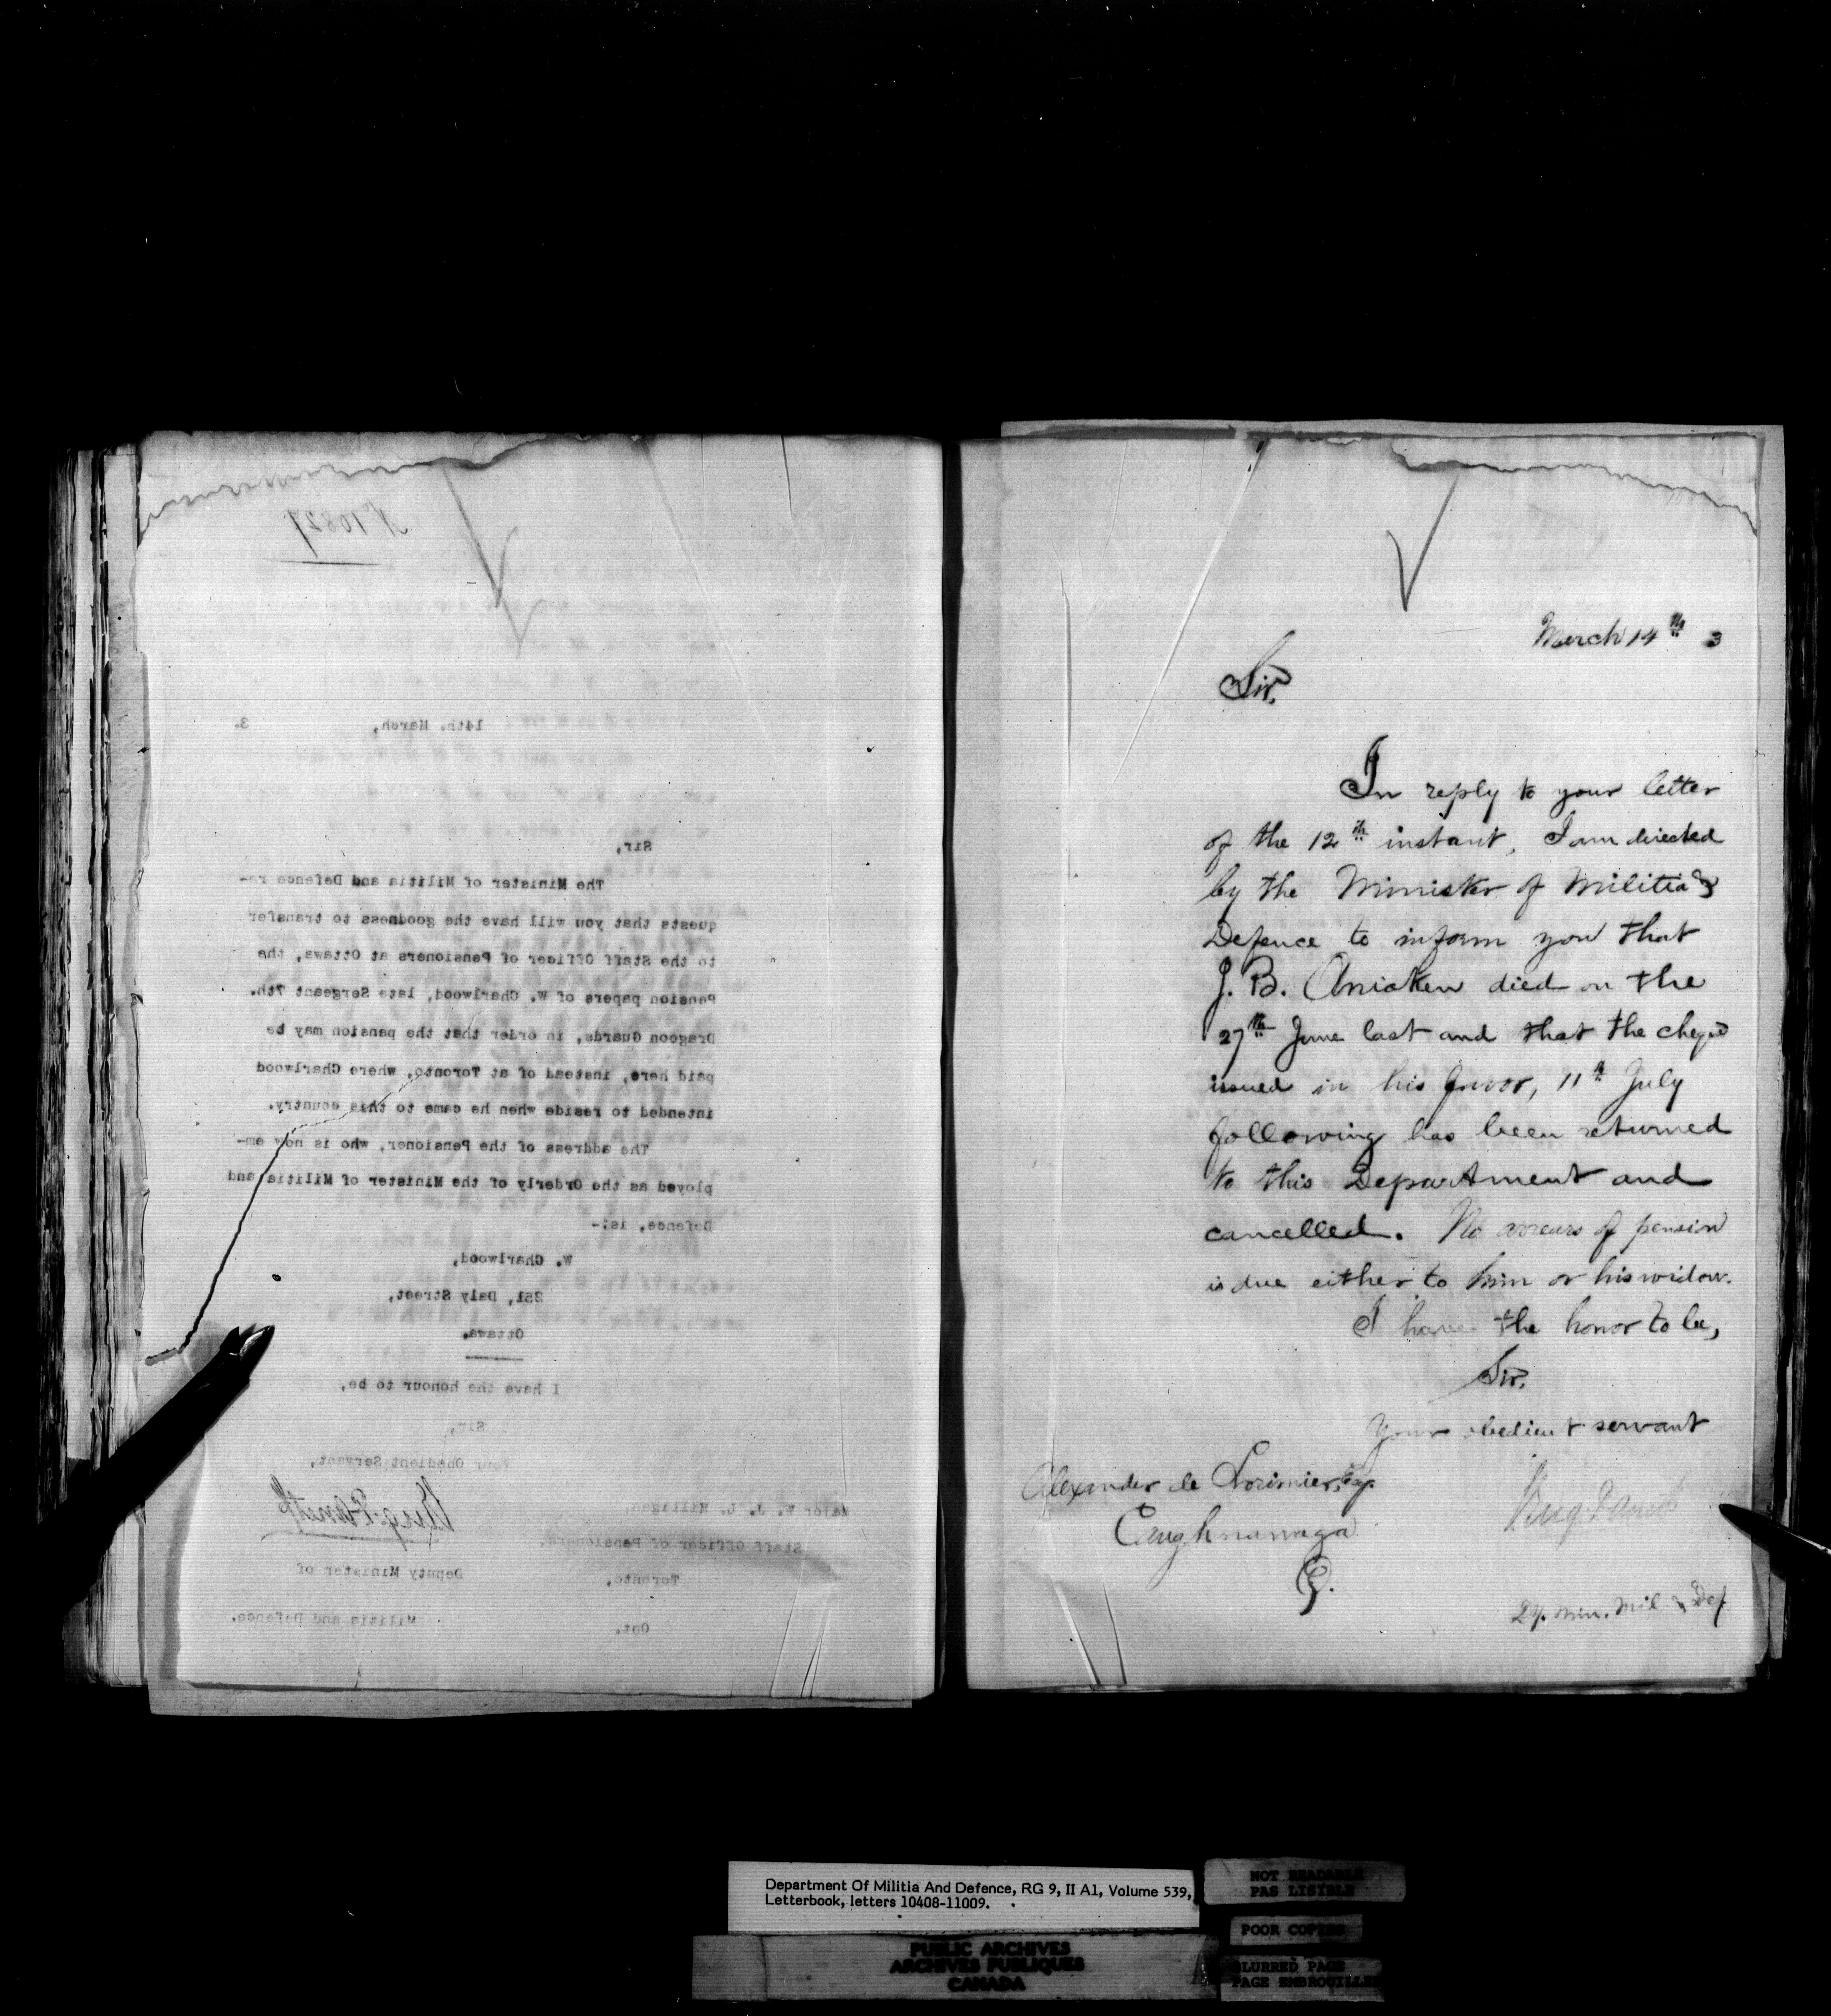 No 10827
14th. March, 3.
Sir,
The Minister of Militia and Defence re-
quests that you will have the goodness to transfer
to the Staff Officer of Pensioners at Ottawa, the
Pension papers of W. Charlwood, late Sergeant 7th.
Dragoon Guards, in order that the pension may be
paid here, instead of at Toronto, where Charlwood
intended to reside when he came to this country.
The address of the Pensioner, who is now em-
ployed as the Orderly of the Minister of Militia and
Defence, is:-
W. Charlwood,
351, Daly Street,
Ottawa.
I have the honour to be,
Sir,
Your Obedient Servant,
Major W. J. D. Milligan,
Staff Officer of Pensioners,
Toronto,
Ont.
Deputy Minister of
Militia and Defence.
March 14th 3
Sir,
In reply to your letter
of the 12th instant, I am directed
by the Minister of Militia &
Defence to inform you that
J. B. died on the
27th June last and that the cheque
issued in his favor, 11th July
following has been returned
to this Department and
cancelled. No arrears of pension
is due either to him or his widow.
I have the honor to be,
Sir,
Your obedient servant
Alexander de Lorimier, Esq.
Caughnawaga
Q.
Dy. Min. Mil. & Def.
Department Of Militia And Defence, RG 9, II A1, Volume 539,
Letterbook, letters 10408-11009.
PUBLIC ARCHIVES
ARCHIVES PUBLIQUES
CANADA
NOT READABLE
PAS LISIBLE
POOR COPIES
BLURRED PAGE
PAGE EMBROUILLEE